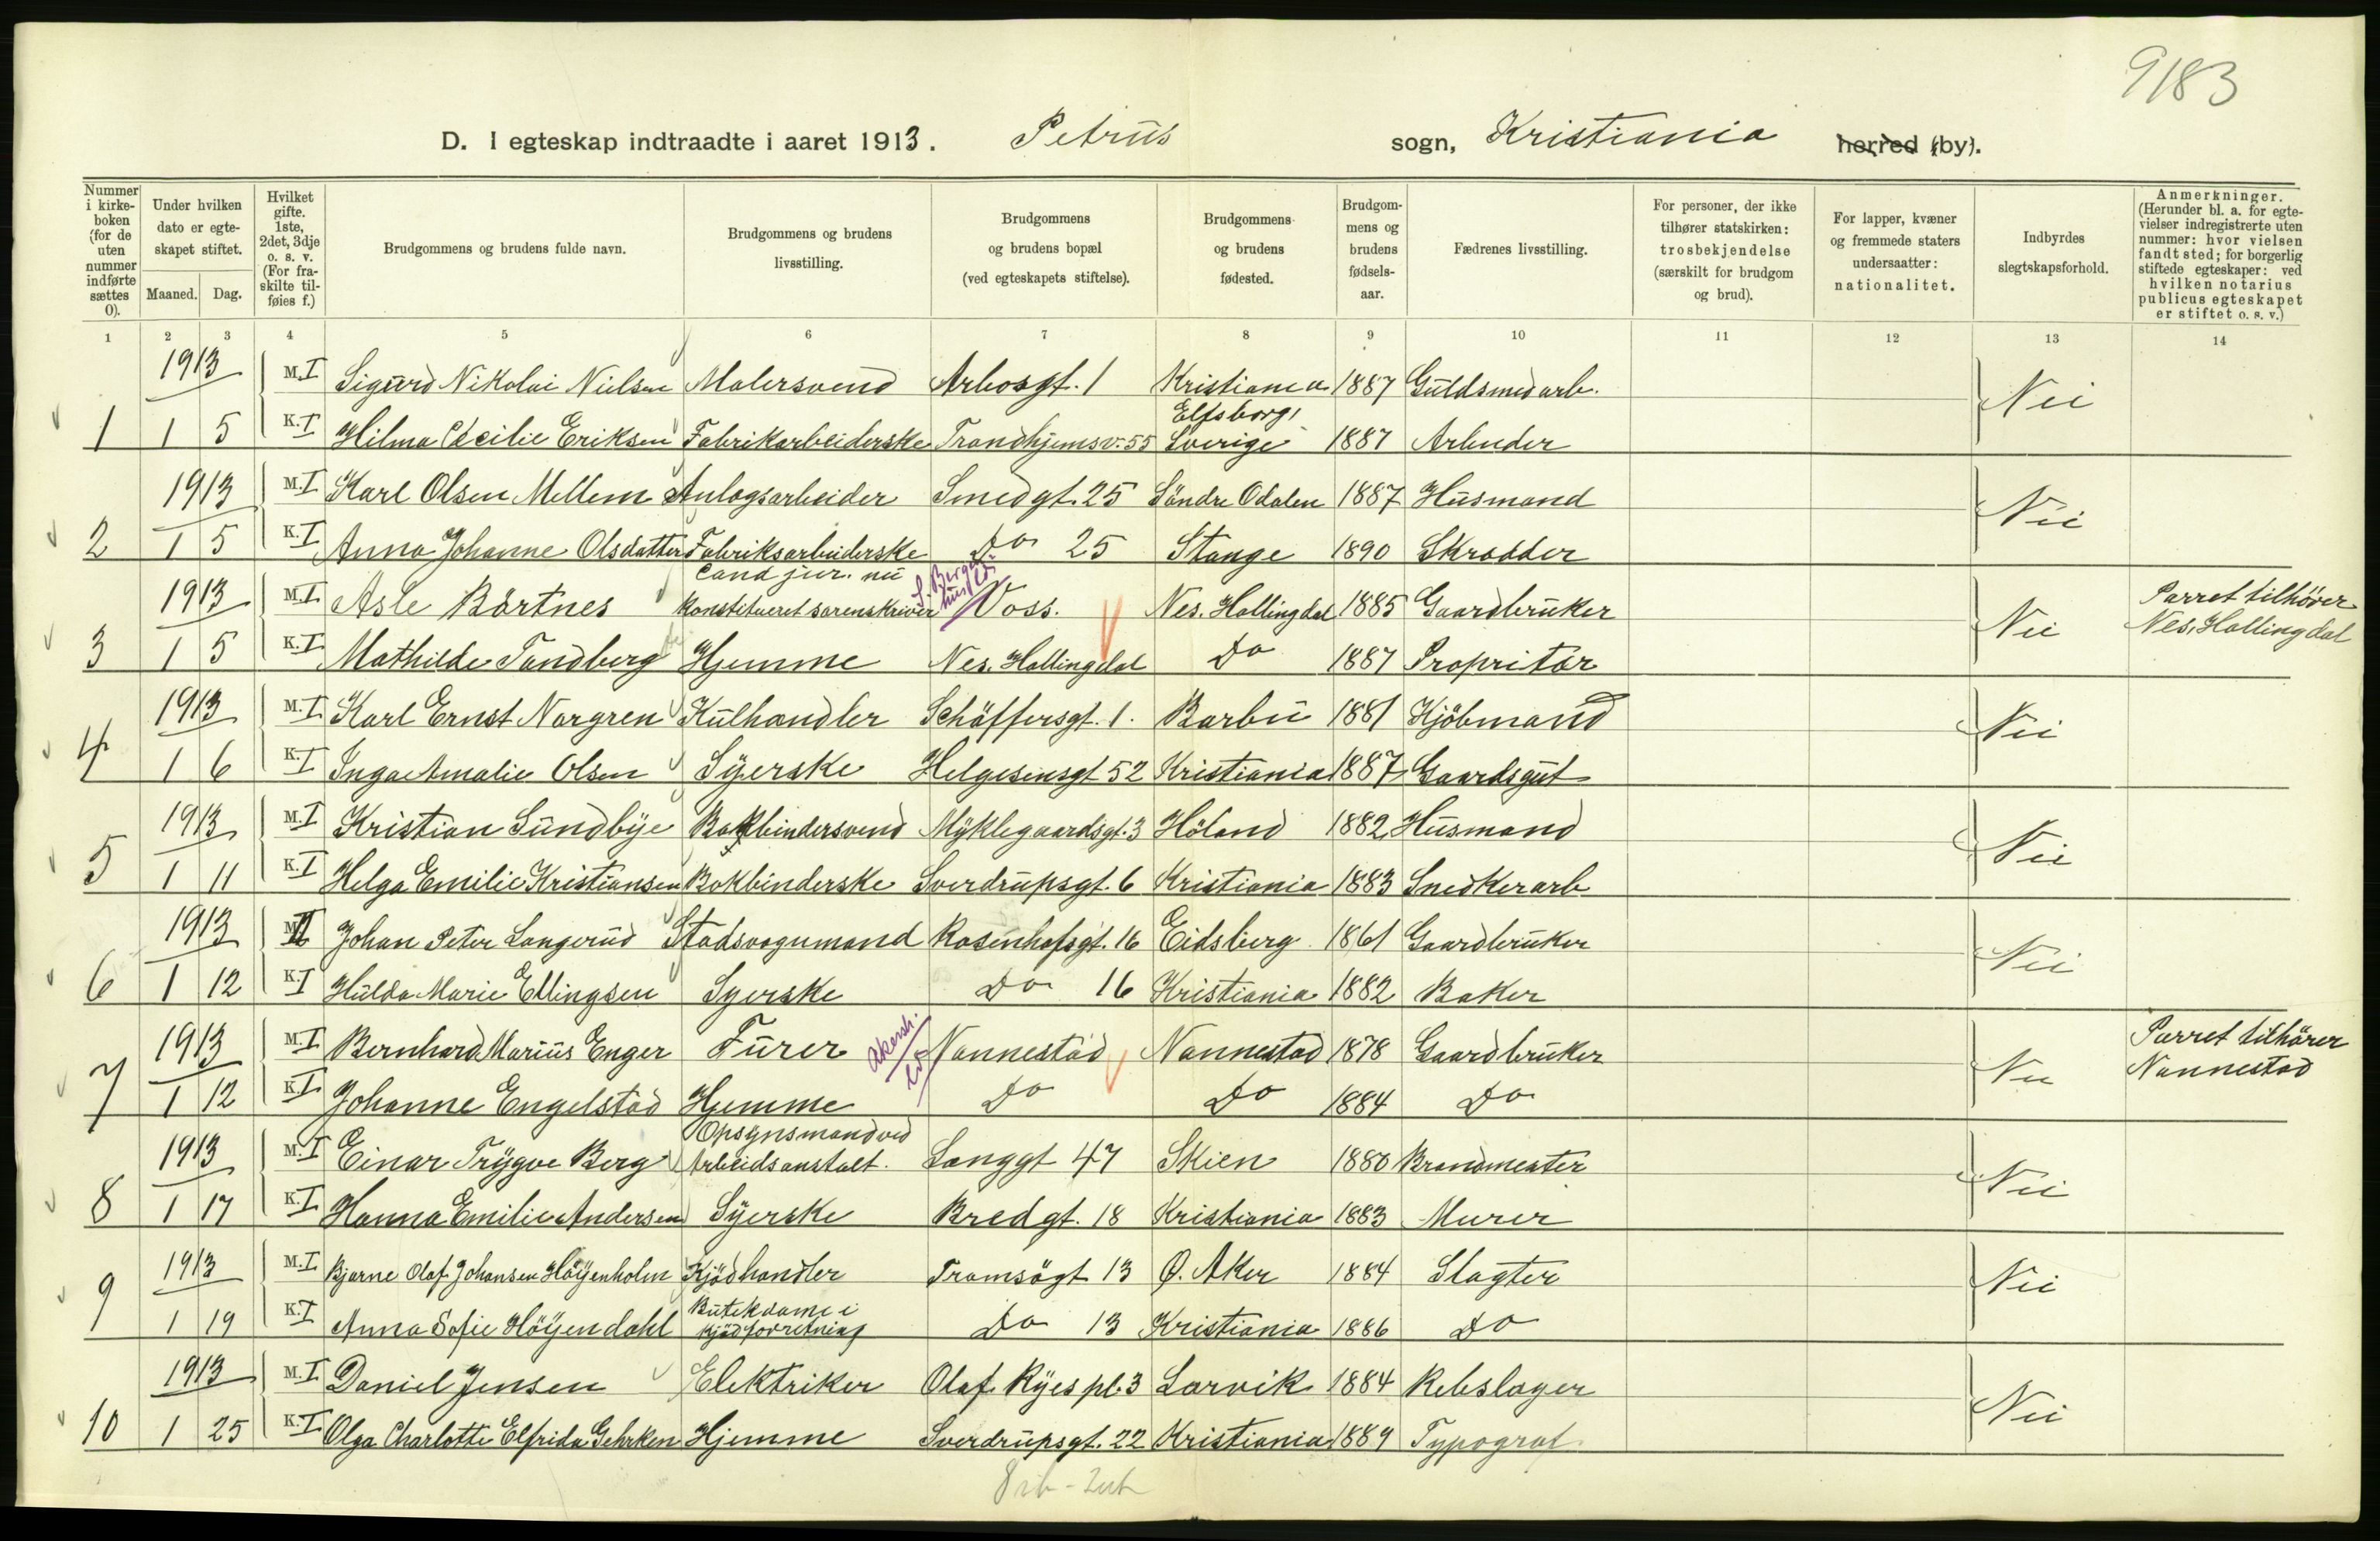 9183
D. I egteskap indtraadte i aaret 1913. Petrus sogn, Kristiania herred (by).
Nummer i kirkeboken (for de uten nummer indførte sættes 0).
Under hvilken dato er egteskapet stiftet.
Maaned. Dag.
Hvilket gifte. 1ste, 2det, 3dje o. s. v. (For fraskilte tilføies f.)
Brudgommens og brudens fulde navn.
Brudgommens og brudens livsstilling.
Brudgommens og brudens bopæl (ved egteskapets stiftelse).
Brudgommens og brudens fødested.
Brudgommens og brudens fødselsaar.
Fædrenes livsstilling.
For personer, der ikke tilhører statskirken: trosbekjendelse (særskilt for brudgom og brud).
For lapper, kvæner og fremmede staters undersaatter: nationalitet.
Indbyrdes slegtskapsforhold.
Anmerkninger. (Herunder bl. a. for egtevielser indregistrerte uten nummer: hvor vielsen fandt sted; for borgerlig stiftede egteskaper: ved hvilken notarius publicus egteskapet er stiftet o. s. v.)
1 2 3 4 5 6 7 8 9 10 11 12 13 14
1913 M. I Sigurd Nikolai Nielsen Malersvend Arbosgt. 1 Kristiania 1887 Guldsmedarb. Nei
1 1 5 K. I Hilma Cecilie Eriksen Fabrikarbeiderske Trondhjemsv. 55 Elfsborg, Sverige 1887 Arbeider
1913 M. I Karl Olsen Mellem Anlægsarbeider Smedgt. 25 Søndre Odalen 1887 Husmand Nei
2 1 5 K. I Anna Johanne Olsdatter Fabriksarbeiderske Do 25 Stange 1890 Skrædder
1913 M. I Asle Bårtnes cand jur. nu konstitueret sorenskriver S. Bergenhus Voss. Nes. Hallingdal 1885 Gaardbruker Nei Parret tilhører Nes, Hallingdal
3 1 5 K. I Mathilde Tandberg Hjemme Nes. Hallingdal Do 1887 Propritær
1913 M. I Karl Ernst Norgren Kulhandler Schäffersgt. 1. Barbu 1881 Kjøbmand Nei
4 1 6 K. I Inga Amalie Olsen Syerske Helgesensgt 52 Kristiania 1887 Gaardsgut
1913 M. I Kristian Sundbye Bokbindersvend Myklegaardsgt. 3 Høland 1882 Husmand Nei
5 1 11 K. I Helga Emilie Kristiansen Bokbinderske Sverdrupsgt. 6 Kristiania 1883 Snedkerarb
1913 M. II Johan Peter Langerud Stadsvognmand Rosenhofsgt. 16 Eidsberg 1861 Gaardbruker Nei
6 1 12 K. I Hulda Marie Ellingsen Syerske Do 16 Kristiania 1882 Baker
1913 M. I Bernhard Marius Enger Furer Akersh. Nannestad Nannestad 1878 Gaardbruker Nei Parret tilhører Nannestad
7 1 12 K. I Johanne Engelstad Hjemme Do Do 1884 Do
1913 M. I Einar Trygve Berg Opsynsmand ved Arbeidsanstalt. Langgt 47 Skien 1880 Brandmester Nei
8 1 17 K. I Hanna Emilie Andersen Syerske Bredgt. 18 Kristiania 1883 Murer
1913 M. I Bjarne Olaf Johansen Høyenholm Kjødhandler Tromsøgt 13 Ø. Aker 1884 Slagter Nei
9 1 19 K. I Anna Sofie Høyendahl Butikdame i kjødforretning Do 13 Kristiania 1886 Do
1913 M. I Daniel Jensen Elektriker Olaf Ryes pl. 3 Larvik 1884 Rebslager Nei
10 1 25 K. I Olga Charlotte Elfrida Gehrken Hjemme Sverdrupsgt. 22 Kristiania 1889 Typograf